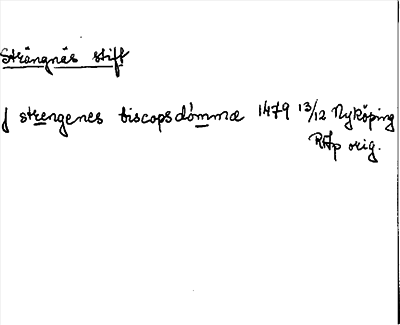 Strängnäs stift
J strengenes biscopsdómmæ 1479 13/12 Nyköping
RAp orig.